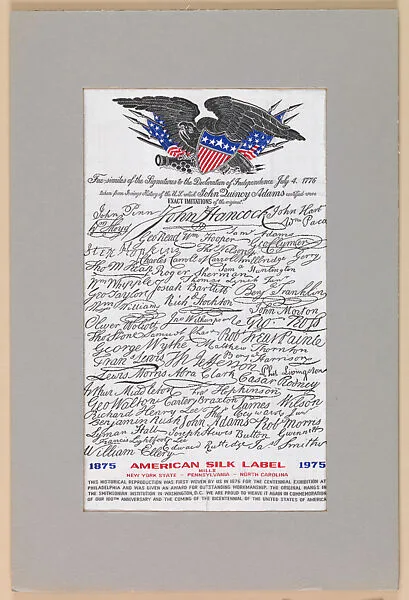 Fac-similes of the Signatures to the Declaration of Independence July 4. 1776
taken from Binns's History of the U.S. which John Quincy Adams certified were
EXACT IMITATIONS of the original.
John Penn John Hancock John Hart
Wm Paca
Geo Read Wm Hooper Sam Adams
Geo Clymer
Step Hopkins Tho Nelson jr Gerry
Charles Carroll of Carrollton
Tho M Kean Roger Sherman Sam Huntington
Wm Whipple Thomas Lynch Junr
Geo Taylor Josiah Bartlett Benj Franklin
Wm Williams Richd Stockton John Morton
Oliver Wolcott Jno Witherspoon Geo Ross
Thos Stone Samuel Chase Robt Treat Paine
George Wythe Matthew Thornton
Fran Lewis Th Jefferson Benj Harrison
Lewis Morris Abra Clark Phil Livingston
Caesar Rodney
Arthur Middleton Fra Hopkinson
Geo Walton Carter Braxton James Wilson
Richard Henry Lee Thos Heyward Junr
Benjamin Rush John Adams Robt Morris
Lyman Hall Joseph Hewes Button Gwinnett
Francis Lightfoot Lee
Edward Rutledge Jas Smith
William Ellery
1875 AMERICAN SILK LABEL 1975
MILLS
NEW YORK STATE – PENNSYLVANIA – NORTH CAROLINA
THIS HISTORICAL REPRODUCTION WAS FIRST WOVEN BY US IN 1876 FOR THE CENTENNIAL EXHIBITION AT
PHILADELPHIA AND WAS GIVEN AN AWARD FOR OUTSTANDING WORKMANSHIP. THE ORIGINAL HANGS IN
THE SMITHSONIAN INSTITUTION IN WASHINGTON, D.C. WE ARE PROUD TO WEAVE IT AGAIN IN COMMEMORATION
OF OUR 100TH ANNIVERSARY AND THE COMING OF THE BICENTENNIAL OF THE UNITED STATES OF AMERICA